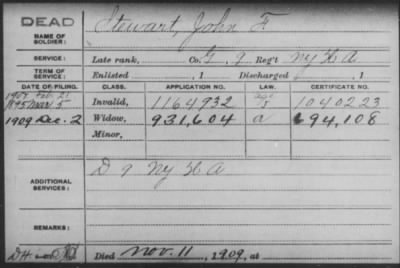 DEAD
NAME OF SOLDIER: Stewart, John F.
SERVICE: Late rank, Co. G. 9 Reg't NY H A
TERM OF SERVICE: Enlisted , 1 Discharged , 1
DATE OF FILING. CLASS. APPLICATION NO. LAW. CERTIFICATE NO.
1907 Feb. 21
1895 Mar 5 Invalid, 1164932 1040223
1909 Dec. 2 Widow, 931,604 a 694,108
Minor,
ADDITIONAL SERVICES: D 9 NY H A
REMARKS:
Died Nov. 11, 1909, at